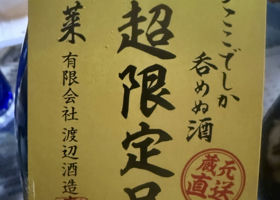 ここでしか
呑めぬ酒
超限定品
蔵元
直送
有限会社 渡辺酒造